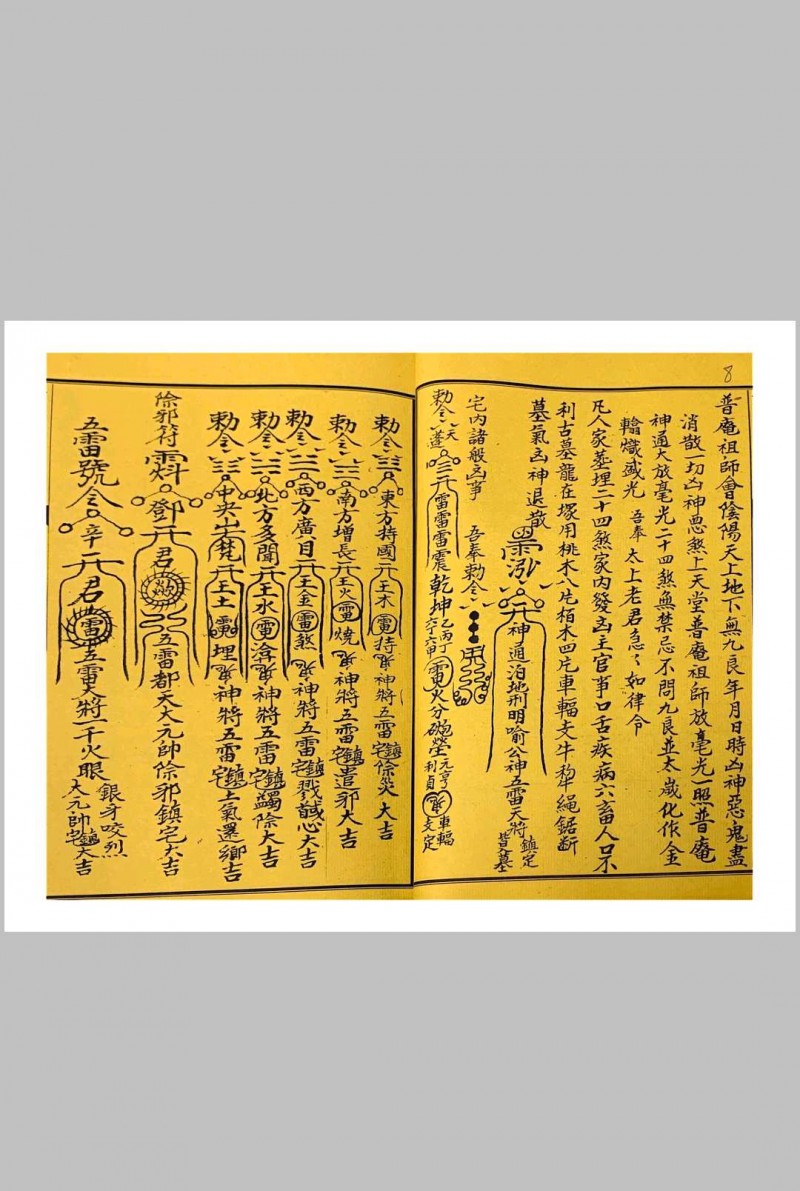 8
普庵祖師會陰陽天上地下無九良年月日時凶神惡鬼盡
消散一切凶神惡煞上天堂普庵祖師放毫光一照普庵
神通大放毫光二十四煞無禁忌不問九良並太歲化作金
輪熾盛光 吾奉 太上老君急々如律令
凡人家墓埋二十四煞家內發凶主官事口舌疾病六畜人口不
利古墓龍在塚用桃木八片栢木四片車輻支牛犂繩鋸断
墓氣凶神退散
神通泊地刑明喻公神五雷天將 鎮定
宅內諸般凶事 吾奉勅令
勅令 雷雷雷震乾坤乙丙丁六丁六甲電火分 元亨利貞 車輻支定
勅令 東方持國王木雷持 神將五雷鎮宅除災大吉
勅令 南方增長王火電燒 神將五雷鎮宅遣邪大吉
勅令 西方廣目王金雷煞 神將五雷鎮宅戮 心大吉
勅令 北方多聞王水電 神將五雷鎮宅蠲除大吉
勅令 中央 梵王土 埋 神將五雷鎮宅土氣還鄉吉
除邪符 鄧君 五雷都天大元帥除邪鎮宅大吉
五雷號令 辛君雷五雷大將一千火眼
銀牙咬烈
大元帥鎮宅大吉